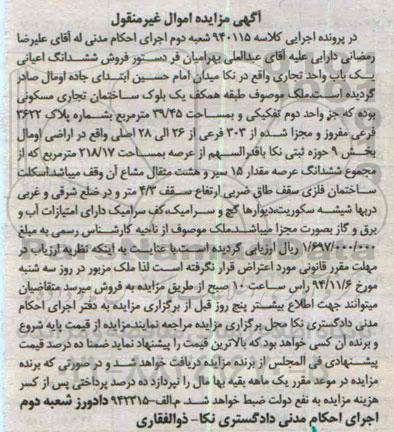 آگهی مزایده اموال غیرمنقول
در پرونده اجرایی کلاسه ۹۴۰۱۱۵ شعبه دوم اجرای احکام مدنی له آقای علیرضا
رمضانی دارابی علیه آقای عبدالعلی بهرامیان فر دستور فروش ششدانگ اعیانی
یک باب واحد تجاری واقع در نکا میدان امام حسین ابتدای جاده اومال صادر
گردیده است.ملک موصوف طبقه همکف یک بلوک ساختمان تجاری مسکونی
بوده که جز واحد دوم تفکیکی و بمساحت ۳۹/۴۵ مترمربع بشماره پلاک ۳۶۲۲
فرعی مفروز و مجزا شده از ۳۰۳ فرعی از ۲۶ الی ۲۸ اصلی واقع در اراضی اومال
بخش ۹ حوزه ثبتی نکا باقدرالسهم از عرصه بمساحت ۲۱۸/۱۷ مترمربع که از
مجموع ششدانگ عرصه مقدار ۱۵ سیر و هشت مثقال مشاع آن وقف میباشد.اسکلت
ساختمان فلزی سقف طاق ضربی ارتفاع سقف ۴/۳ متر و در ضلع شرقی و غربی
دربها شیشه سکوریت،دیوارها گچ و سرامیک،کف سرامیک دارای امتیازات آب و
برق و گاز بصورت مجزا میباشد.ملک موصوف از ناحیه کارشناس رسمی به مبلغ
۱/۶۹۷/۰۰۰/۰۰۰ ریال ارزیابی گردیده است.با عنایت به اینکه نظریه ارزیاب در
مهلت مقرر قانونی مورد اعتراض قرار نگرفته است لذا ملک مزبور در روز سه شنبه
مورخ ۹۴/۱۱/۶ راس ساعت ۱۰ صبح از طریق مزایده به فروش میرسد متقاضیان
میتوانند جهت اطلاع بیشتر پنج روز قبل از برگزاری مزایده به دفتر اجرای احکام
مدنی دادگستری نکا محل برگزاری مزایده مراجعه نمایند.مزایده از قیمت پایه شروع
و برنده آن کسی خواهد بود که بالاترین قیمت را پیشنهاد نماید ضمنا ده درصد قیمت
پیشنهادی فی المجلس از برنده مزایده دریافت خواهد شد و در صورتی که برنده
مزایده در موعد مقرر یک ماهه بقیه بها مال را نپردازد ده درصد پرداختی پس از کسر
هزینه مزایده به نفع دولت ضبط خواهد شد. م.الف-۹۴۲۳۱۵ دادورز شعبه دوم
اجرای احکام مدنی دادگستری نکا- ذوالفقاری